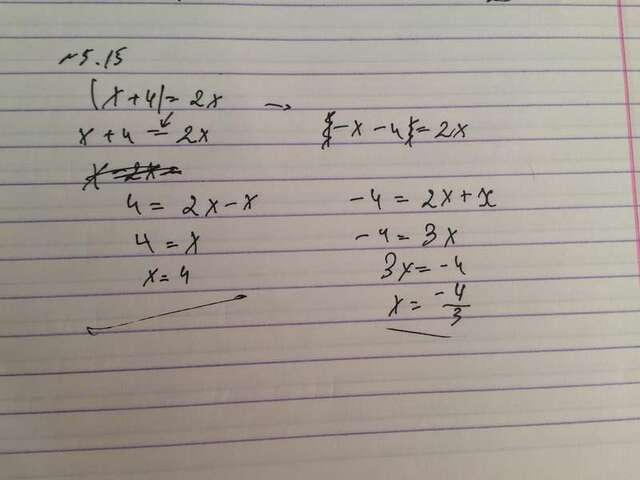 №5.15
|x+4|=2x →
x+4=2x
-x-4=2x
4=2x-x
-4=2x+x
4=x
-4=3x
x=4
3x=-4
x=-4/3